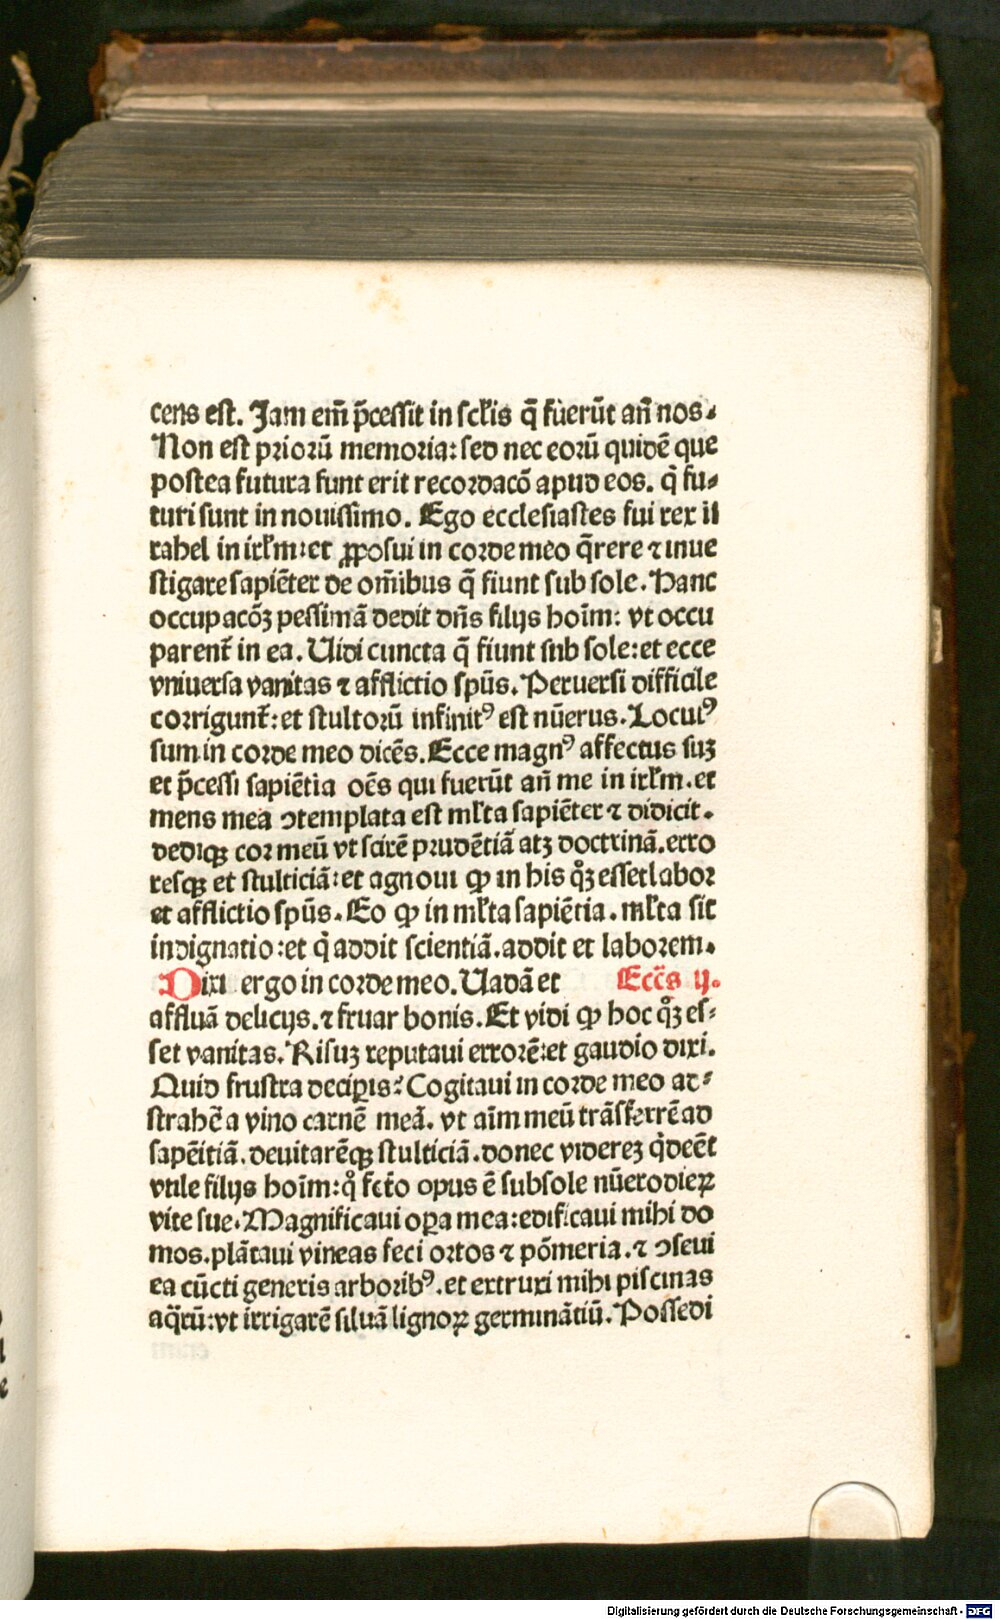 cens est. Jam em̄ p̄cessit in sc̄lis q̄ fuerūt an̄ nos.
Non est priorū memoria: sed nec eorū quidē que
postea futura sunt erit recordacō apud eos. q̄ fu⸗
turi sunt in nouissimo. Ego ecclesiastes fui rex iſ
rahel in irl̄m: et ꝓposui in corde meo q̄rere ⁊ inue
stigare sapiēter de om̄ibus q̄ fiunt sub sole. Hanc
occupacōꝫ pessimā dedit dn̄s filijs hoīm: vt occu
parent̄ in ea. Uidi cuncta q̄ fiunt sub sole: et ecce
vniuersa vanitas ⁊ afflictio spūs. Peruersi difficile
corrigunt̄: et stultorū infinitꝰ est nūerus. Locutꝰ
sum in corde meo dicēs. Ecce magnꝰ affectus suꝫ
et p̄cessi sapiētia oēs qui fuerūt an̄ me in irl̄m. et
mens mea ↄtemplata est ml̄ta sapiēter ⁊ didicit.
dediqꝫ cor meū vt scirē prudētiā atꝫ doctrinā. erro
resqꝫ et stulticiā: et agnoui ꝙ in his qͦꝫ esset labor
et afflictio spūs. Eo ꝙ in ml̄ta sapiētia. ml̄ta sit
indignatio: et q̇ addit scientiā. addit et laborem.
Dixi ergo in corde meo. Uadā et Eccs̄ ij.
affluā delicijs. ⁊ fruar bonis. Et vidi ꝙ hoc qͦꝫ es⸗
set vanitas. Risuꝫ reputaui errorē: et gaudio dixi.
Quid frustra deciꝑis? Cogitaui in corde meo ac⸗
strahē a vino carnē meā. vt aīm meū trāsferrē ad
sapēitiā. deuitarēqꝫ stulticiā. donec videreꝫ q̇d eēt
vtile filijs hoīm: qͦ fc̄to opus ē sub sole nūero dieꝝ
vite sue. Magnificaui oꝑa mea: edificaui mihi do
mos. plātaui vineas feci ortos ⁊ pōmeria. ⁊ ↄseui
ea cūcti generis arboribꝰ. et extruxi mihi piscinas
aq̄rū: vt irrigarē siluā lignoꝝ germinātiū. Possedi
Digitalisierung gefördert durch die Deutsche Forschungsgemeinschaft - DFG